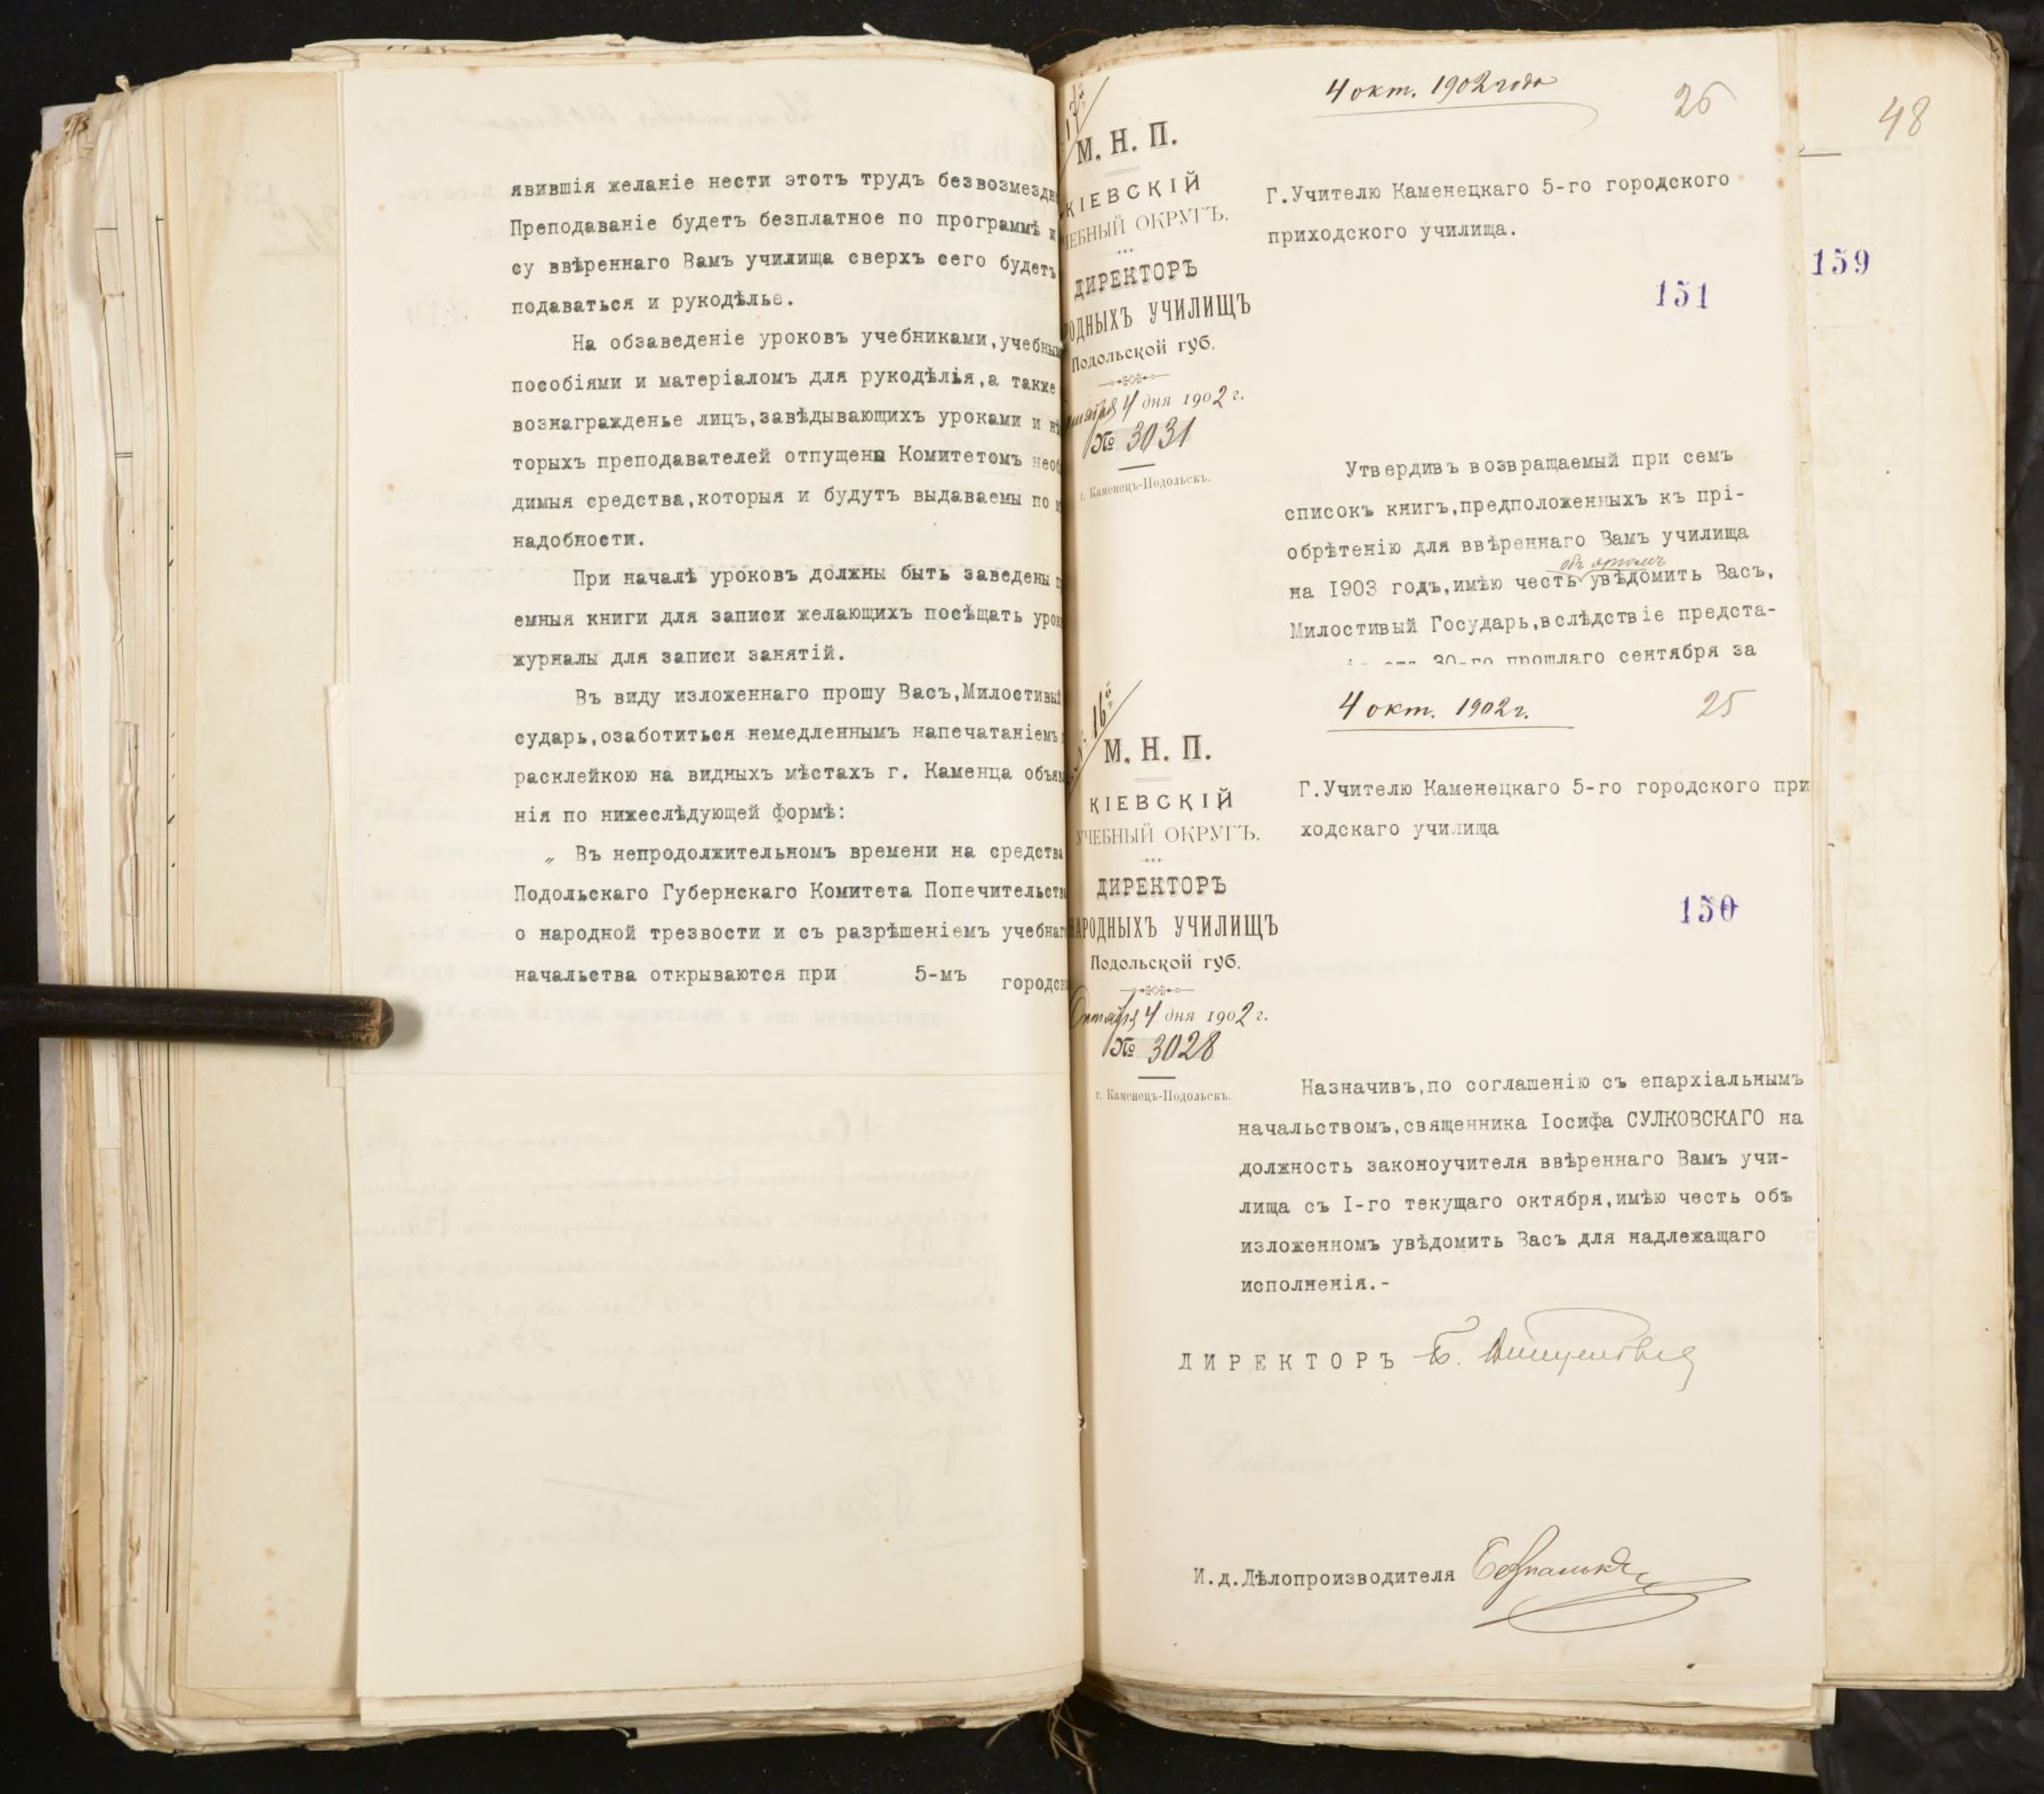 явившія желаніе нести этотъ трудъ безвозмездн
Преподаваніе будетъ безплатное по программѣ и
су ввѣреннаго Вамъ училища сверхъ сего будетъ
подаваться и рукодѣлье.
На обзаведеніе уроковъ учебниками,учебным
пособіями и матеріаломъ для рукодѣлія,а также
вознагражденье лицъ,завѣдывающихъ уроками и нѣ
торыхъ преподавателей отпущены Комитетомъ необ
димыя средства,которыя и будутъ выдаваемы по
надобности.
При началѣ уроковъ должны быть заведены
емныя книги для записи желающихъ посѣщать урок
журналы для записи занятій.
Въ виду изложеннаго прошу Васъ,Милостивый
сударь,озаботиться немедленнымъ напечатаніемъ
расклейкою на видныхъ мѣстахъ г. Каменца объяв
нія по нижеслѣдующей формѣ:
„ Въ непродолжительномъ времени на средства
Подольскаго Губернскаго Комитета Попечительства
о народной трезвости и съ разрѣшеніемъ учебнаго
начальства открываются при 5-мъ городск
4 окт. 1902 года
26
48
17
М. Н. П.
КІЕВСКІЙ
ЧЕБНЫЙ ОКРУГЪ.
ДИРЕКТОРЪ
РОДНЫХЪ УЧИЛИЩЪ
Подольской губ.
4 дня 1902 г.
№ 3031
г. Каменецъ-Подольскъ.
Г.Учителю Каменецкаго 5-го городского
приходского училища.
151
159
Утвердивъ возвращаемый при семъ
списокъ книгъ,предположенныхъ къ прі-
обрѣтенію для ввѣреннаго Вамъ училища
объ этомъ
на 1903 годъ,имѣю честь увѣдомить Васъ,
Милостивый Государь,вслѣдствіе предста-
30-го прошлаго сентября за
16
4 окт. 1902 г.
25
М. Н. П.
КІЕВСКІЙ
УЧЕБНЫЙ ОКРУГЪ.
ДИРЕКТОРЪ
НАРОДНЫХЪ УЧИЛИЩЪ
Подольской губ.
Октября 4 дня 1902 г.
№ 3028
г. Каменецъ-Подольскъ.
Г.Учителю Каменецкаго 5-го городского при
ходскаго училища
150
Назначивъ,по соглашенію съ епархіальнымъ
начальствомъ,священника Іосифа СУЛКОВСКАГО на
должность законоучителя ввѣреннаго Вамъ учи-
лища съ I-го текущаго октября,имѣю честь объ
изложенномъ увѣдомить Васъ для надлежащаго
исполненія.-
ДИРЕКТОРЪ
И.д.Дѣлопроизводителя